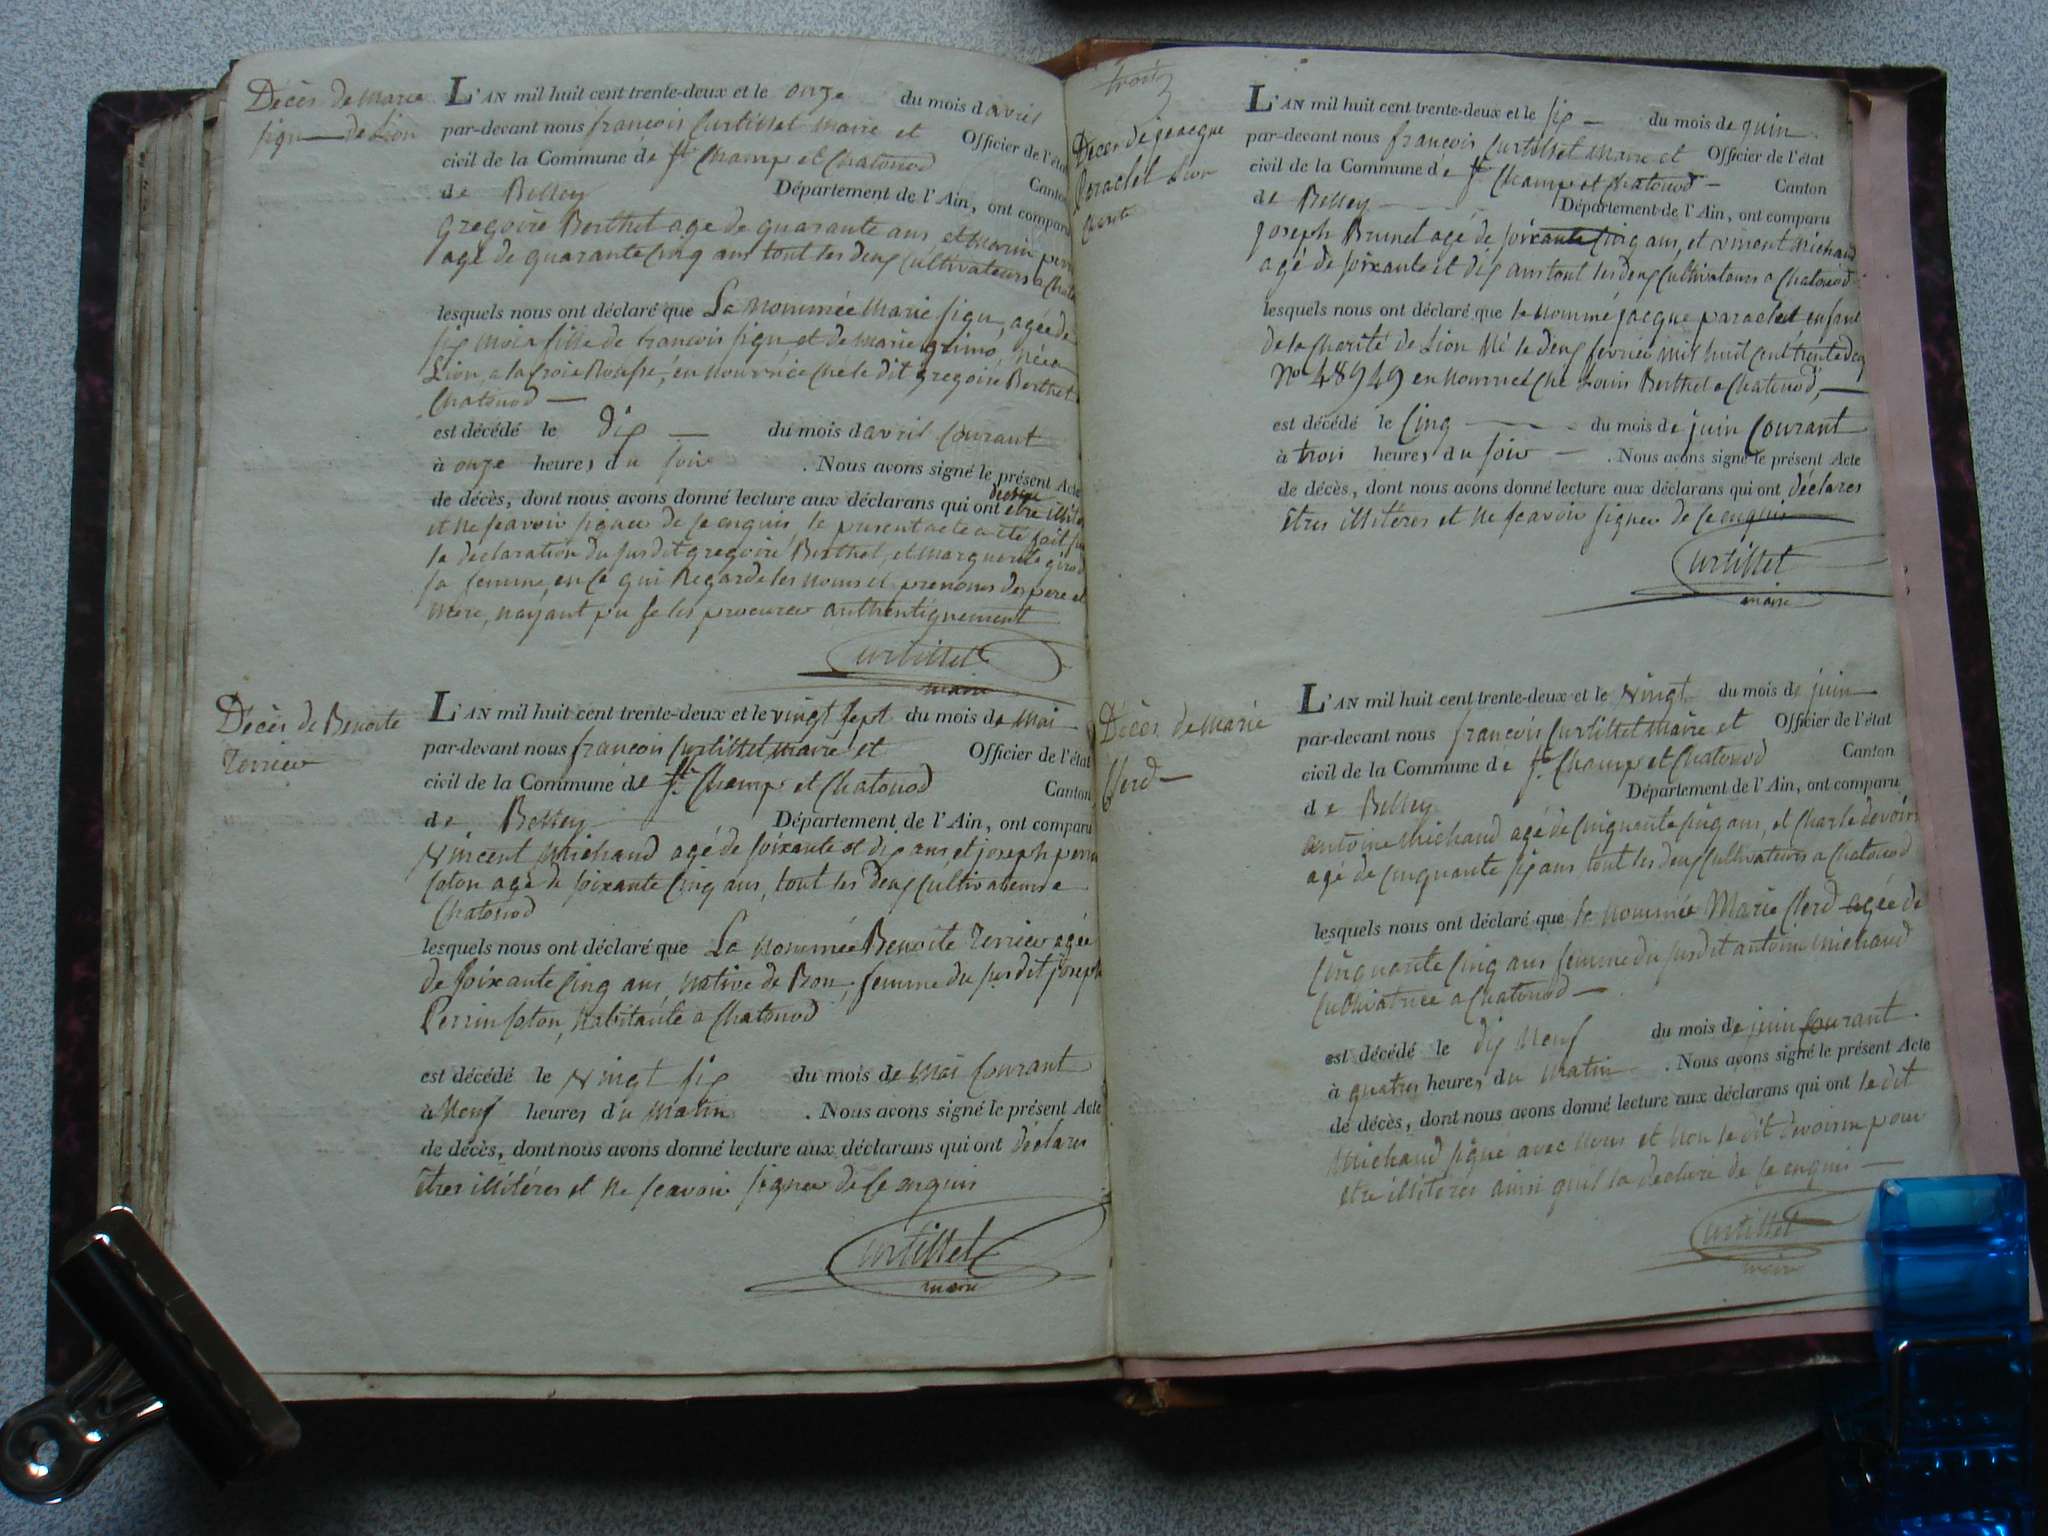 Décès de Marie
Signu de Lion
L'AN mil huit cent trente-deux et le onze du mois d avril
par-devant nous francois Curtillet Maire et Officier de l'état
civil de la Commune de St. Champ et Chatonod Canton
de Belley Département de l'Ain, ont comparu
gregoire Berthet age de quarante ans, et Marin
agé de quarante Cinq ans tout les deux Cultivateurs a
lesquels nous ont déclaré que La Nommée Marie Signu, agée de
Six Mois fille de francois Signu et de Marie Née a
Lion, a la Croix Rousse, en Nourrice Ché le dit gregoire Berthet
Chatonod
est décédé le Dix du mois d avril Courant
à onze heures du Soir . Nous avons signé le présent Acte
de décès, dont nous avons donné lecture aux déclarans qui ont être
et Ne Scavoir Signer de Ce enquis le present acte a été fait
la declaration du Susdit gregoire Berthet, et Marguerite
Sa femme, en Ce qui Regarde les Noms et prenoms des pere et
Mere, nayant pu Se les procurer authentiquement
Curtillet
maire
Décès de Benoite
Terrier
L'AN mil huit cent trente-deux et le vingt Sept du mois de Mai
par-devant nous francois Curtillet Maire et Officier de l'état
civil de la Commune de St. Champ et Chatonod Canton
de Belley Département de l'Ain, ont comparu
Vincent Michaud agé de Soixante et dix ans et joseph
agé de Soixante Cinq ans, tout les deux Cultivateurs a
Chatonod
lesquels nous ont déclaré que La Nommée Benoite Terrier agée
de Soixante Cinq ans, Native de femme du Susdit joseph
Perrin habitante a Chatonod
est décédé le Vingt Six du mois de Mai Courant
à Neuf heures du Matin . Nous avons signé le présent Acte
de décès, dont nous avons donné lecture aux déclarans qui ont déclarés
êtres illitéres et Ne Scavoir Signer de Ce enquis
Curtillet
maire
Décès de jeacque
Paraclet Lion
L'AN mil huit cent trente-deux et le Six du mois de juin
par-devant nous francois Curtillet Maire et Officier de l'état
civil de la Commune dé St. Champ et Chatonod Canton
de Belley Département de l'Ain, ont comparu
joseph Brunet agé de Soixante Cinq ans, et vincent Michaud
agé de Soixante et dix ans tout les deux Cultivateurs a Chatonod
lesquels nous ont déclaré que le Nommé jacque paraclet enfant
de la Charité de Lion Né le deux fevrier mil huit Cent trente deux
No 48949 en Nourrice Ché Louis Berthet a Chatonod,
est décédé le Cinq du mois de juin Courant
à trois heures du Soir . Nous avons signé le présent Acte
de décès, dont nous avons donné lecture aux déclarans qui ont déclarés
êtres illitéres et Ne Scavoir Signer de Ce enquis
Curtillet
maire
Décès de Marie
Clerd
L'AN mil huit cent trente-deux et le Vingt du mois de juin
par-devant nous francois Curtillet Maire et Officier de l'état
civil de la Commune dé St. Champ et Chatonod Canton
de Belley Département de l'Ain, ont comparu
antoine Michaud agé de Cinquante Cinq ans, et Charle devoirin
agé de Cinquante Six ans tout les deux Cultivateurs a Chatonod
lesquels nous ont déclaré que la Nommée Marie Clerd agée de
Cinquante Cinq ans femme du Susdit antoine Michaud
Cultivatrice a Chatonod
est décédé le dix Neuf du mois de juin Courant
à quatres heures du Matin . Nous avons signé le présent Acte
de décès, dont nous avons donné lecture aux déclarans qui ont le dit
Michaud Signé avec Nous et Non le dit devoirin pour
être illitéres ainsi quil la declaré de Ce enquis
Curtillet
maire